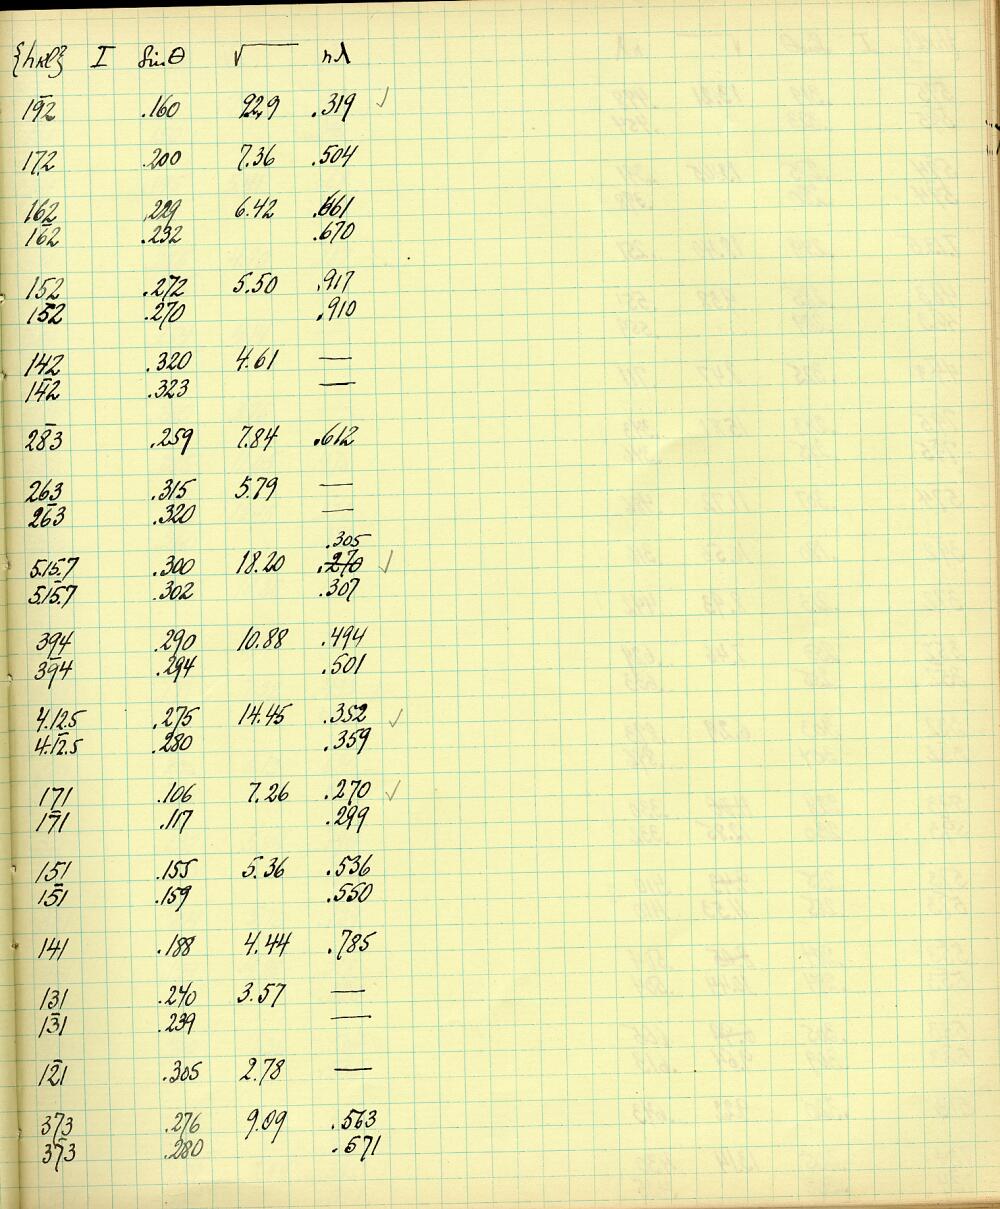 {hkl} I Sinθ √ nλ
19̄2 .160 9.29 .319 ✓
172 .200 7.36 .504
162 .229 6.42 .661
16̄2 .232 .670
152 .272 5.50 .917
15̄2 .270 .910
142 .320 4.61 —
14̄2 .323 —
28̄3 .259 7.84 .612
263 .315 5.79 —
26̄3 .320 —
.305
5.15.7 .300 18.20 .270 ✓
5.1̄5̄.7 .302 .307
394 .290 10.88 .494
39̄4 .294 .501
4.12.5 .275 14.45 .352 ✓
4.1̄2̄.5 .280 .359
171 .106 7.26 .270 ✓
17̄1 .117 .299
151 .155 5.36 .536
15̄1 .159 .550
141 .188 4.44 .785
131 .240 3.57 —
13̄1 .239 —
12̄1 .305 2.78 —
373 .276 9.09 .563
37̄3 .280 .571